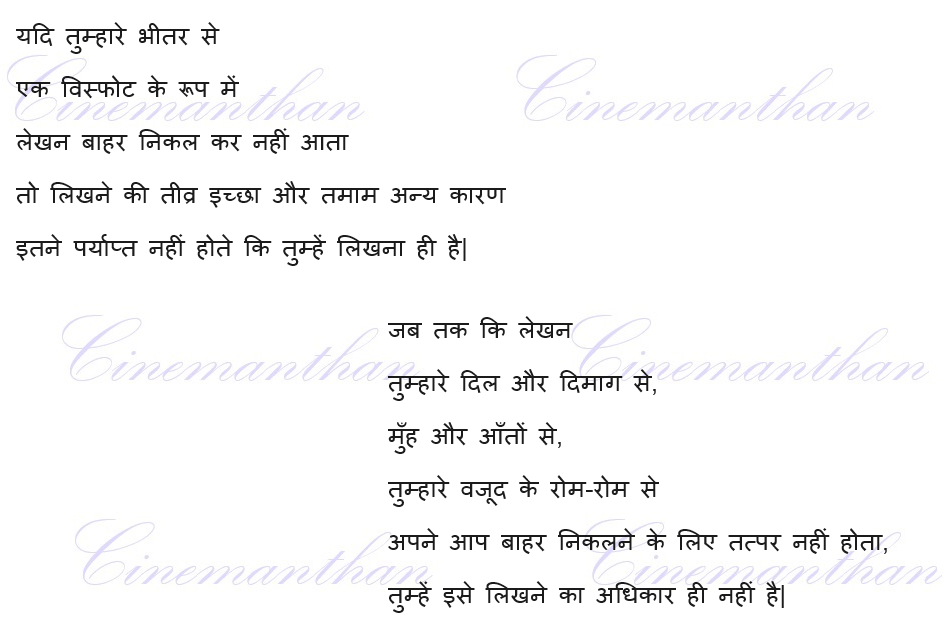 यदि तुम्हारे भीतर से
एक विस्फोट के रूप में
लेखन बाहर निकल कर नहीं आता
तो लिखने की तीव्र इच्छा और तमाम अन्य कारण
इतने पर्याप्त नहीं होते कि तुम्हें लिखना ही है|
जब तक कि लेखन
तुम्हारे दिल और दिमाग से,
मुँह और आँतों से,
तुम्हारे वजूद के रोम-रोम से
अपने आप बाहर निकलने के लिए तत्पर नहीं होता,
तुम्हें इसे लिखने का अधिकार ही नहीं है|
Cinemanthan Cinemanthan
Cinemanthan Cinemanthan
Cinemanthan Cinemanthan